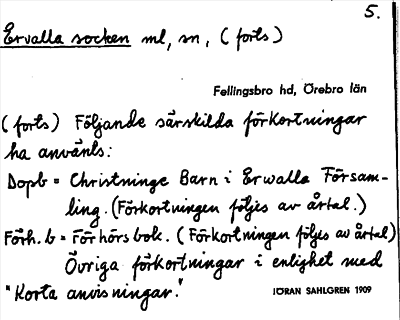 5.
Ervalla socken ml, sn, (forts)
Fellingsbro hd, Örebro län
(forts) Följande särskilda förkortningar
ha använts:
Dopb = Christninge Barn i Erwalla Försam-
ling. (Förkortningen följes av årtal.)
Förh. b = Förhörsbok. (Förkortningen följes av årtal)
Övriga förkortningar i enlighet med
"Korta anvisningar."
JÖRAN SAHLGREN 1909